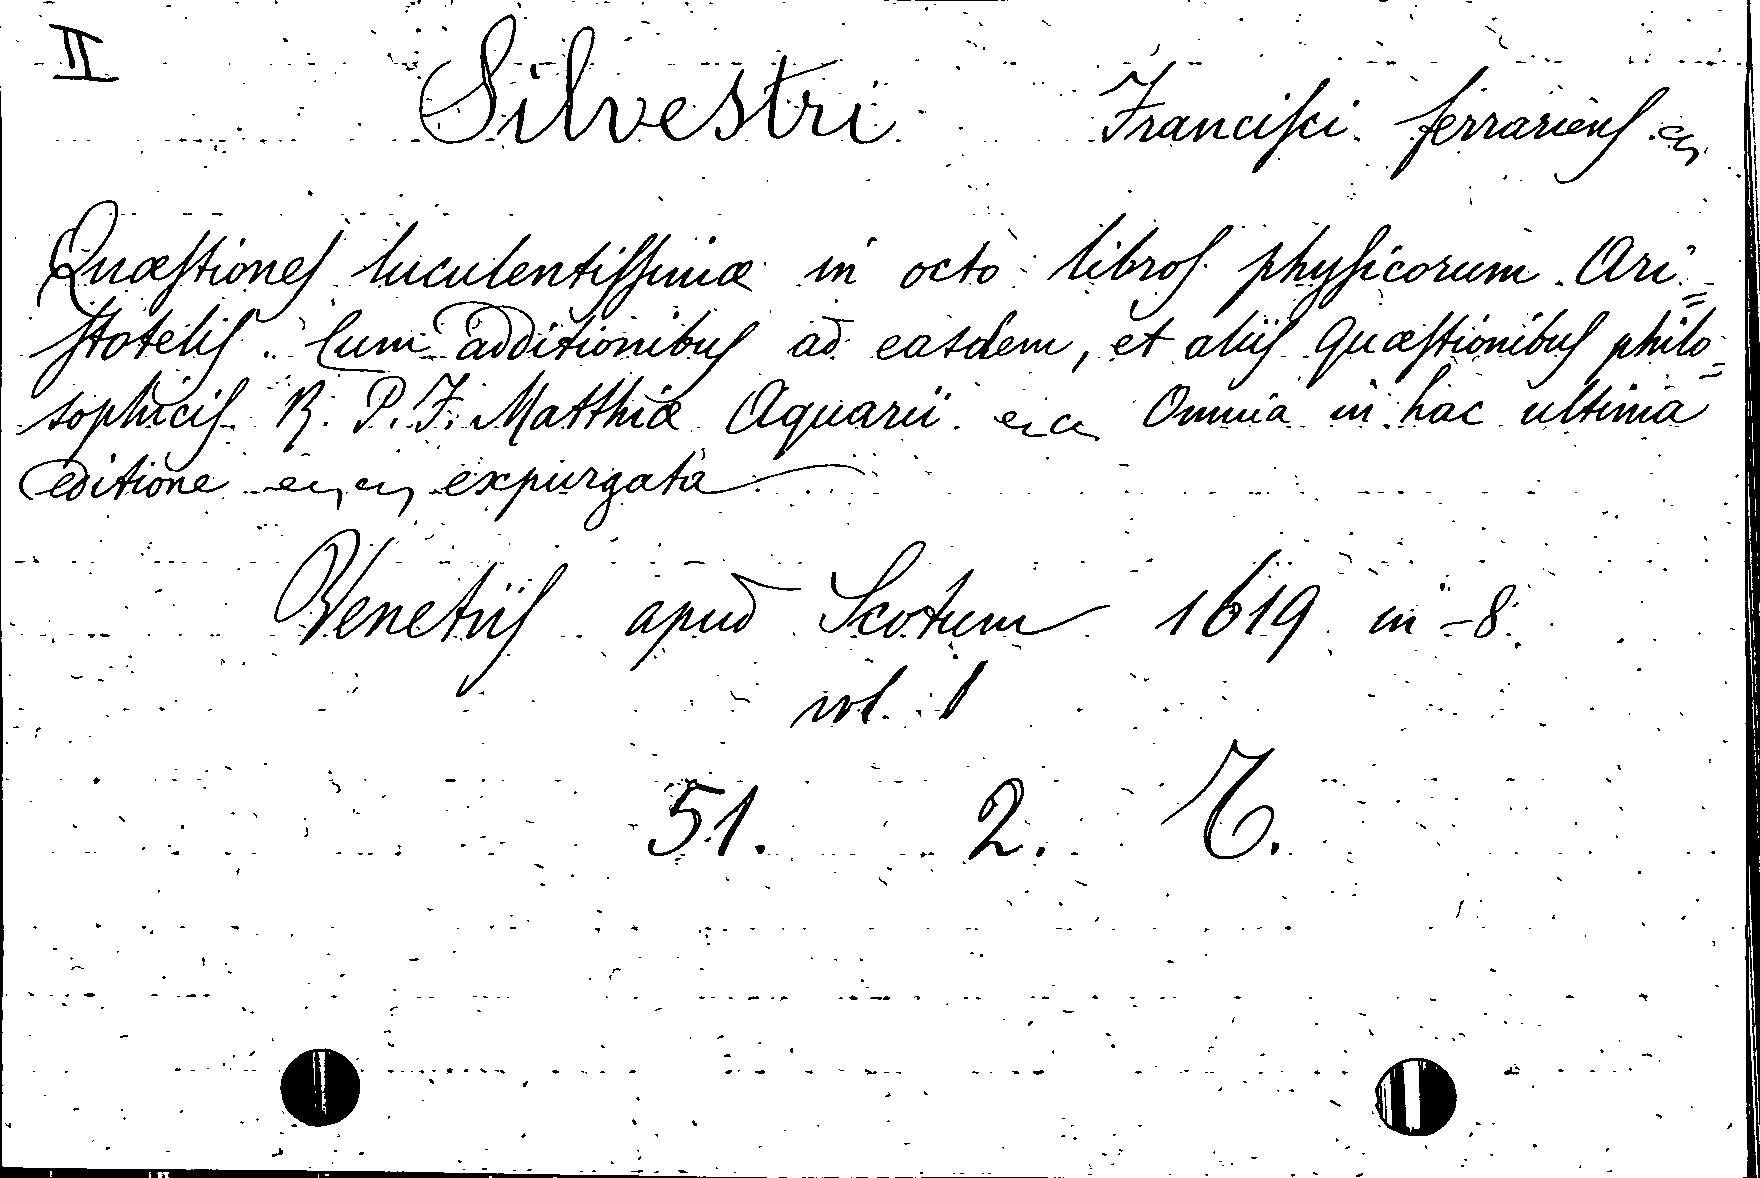 II Silvestri Franciſci ferrarienſ &
Quæſtioneſ luculentiſſimæ in octo libroſ phyſicorum Ari=
ſtoteliſ. Cum additionibuſ ad easdem, et aliiſ Quæſtionibuſ philo=
sophiciſ R. P. F. Matthiæ Aquarii Omnia in hac ultima
editione expurgata
Venetiiſ apud Scotum 1619 in-8.
vol. 1
51. 2. C.